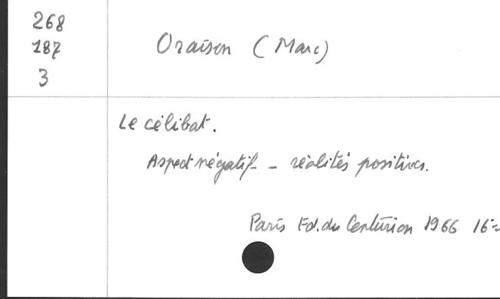 268
187
3
Oraison (Marc)
Le célibat.
Aspect négatif - réalités positives.
Paris Ed. du Centurion 1966 16°